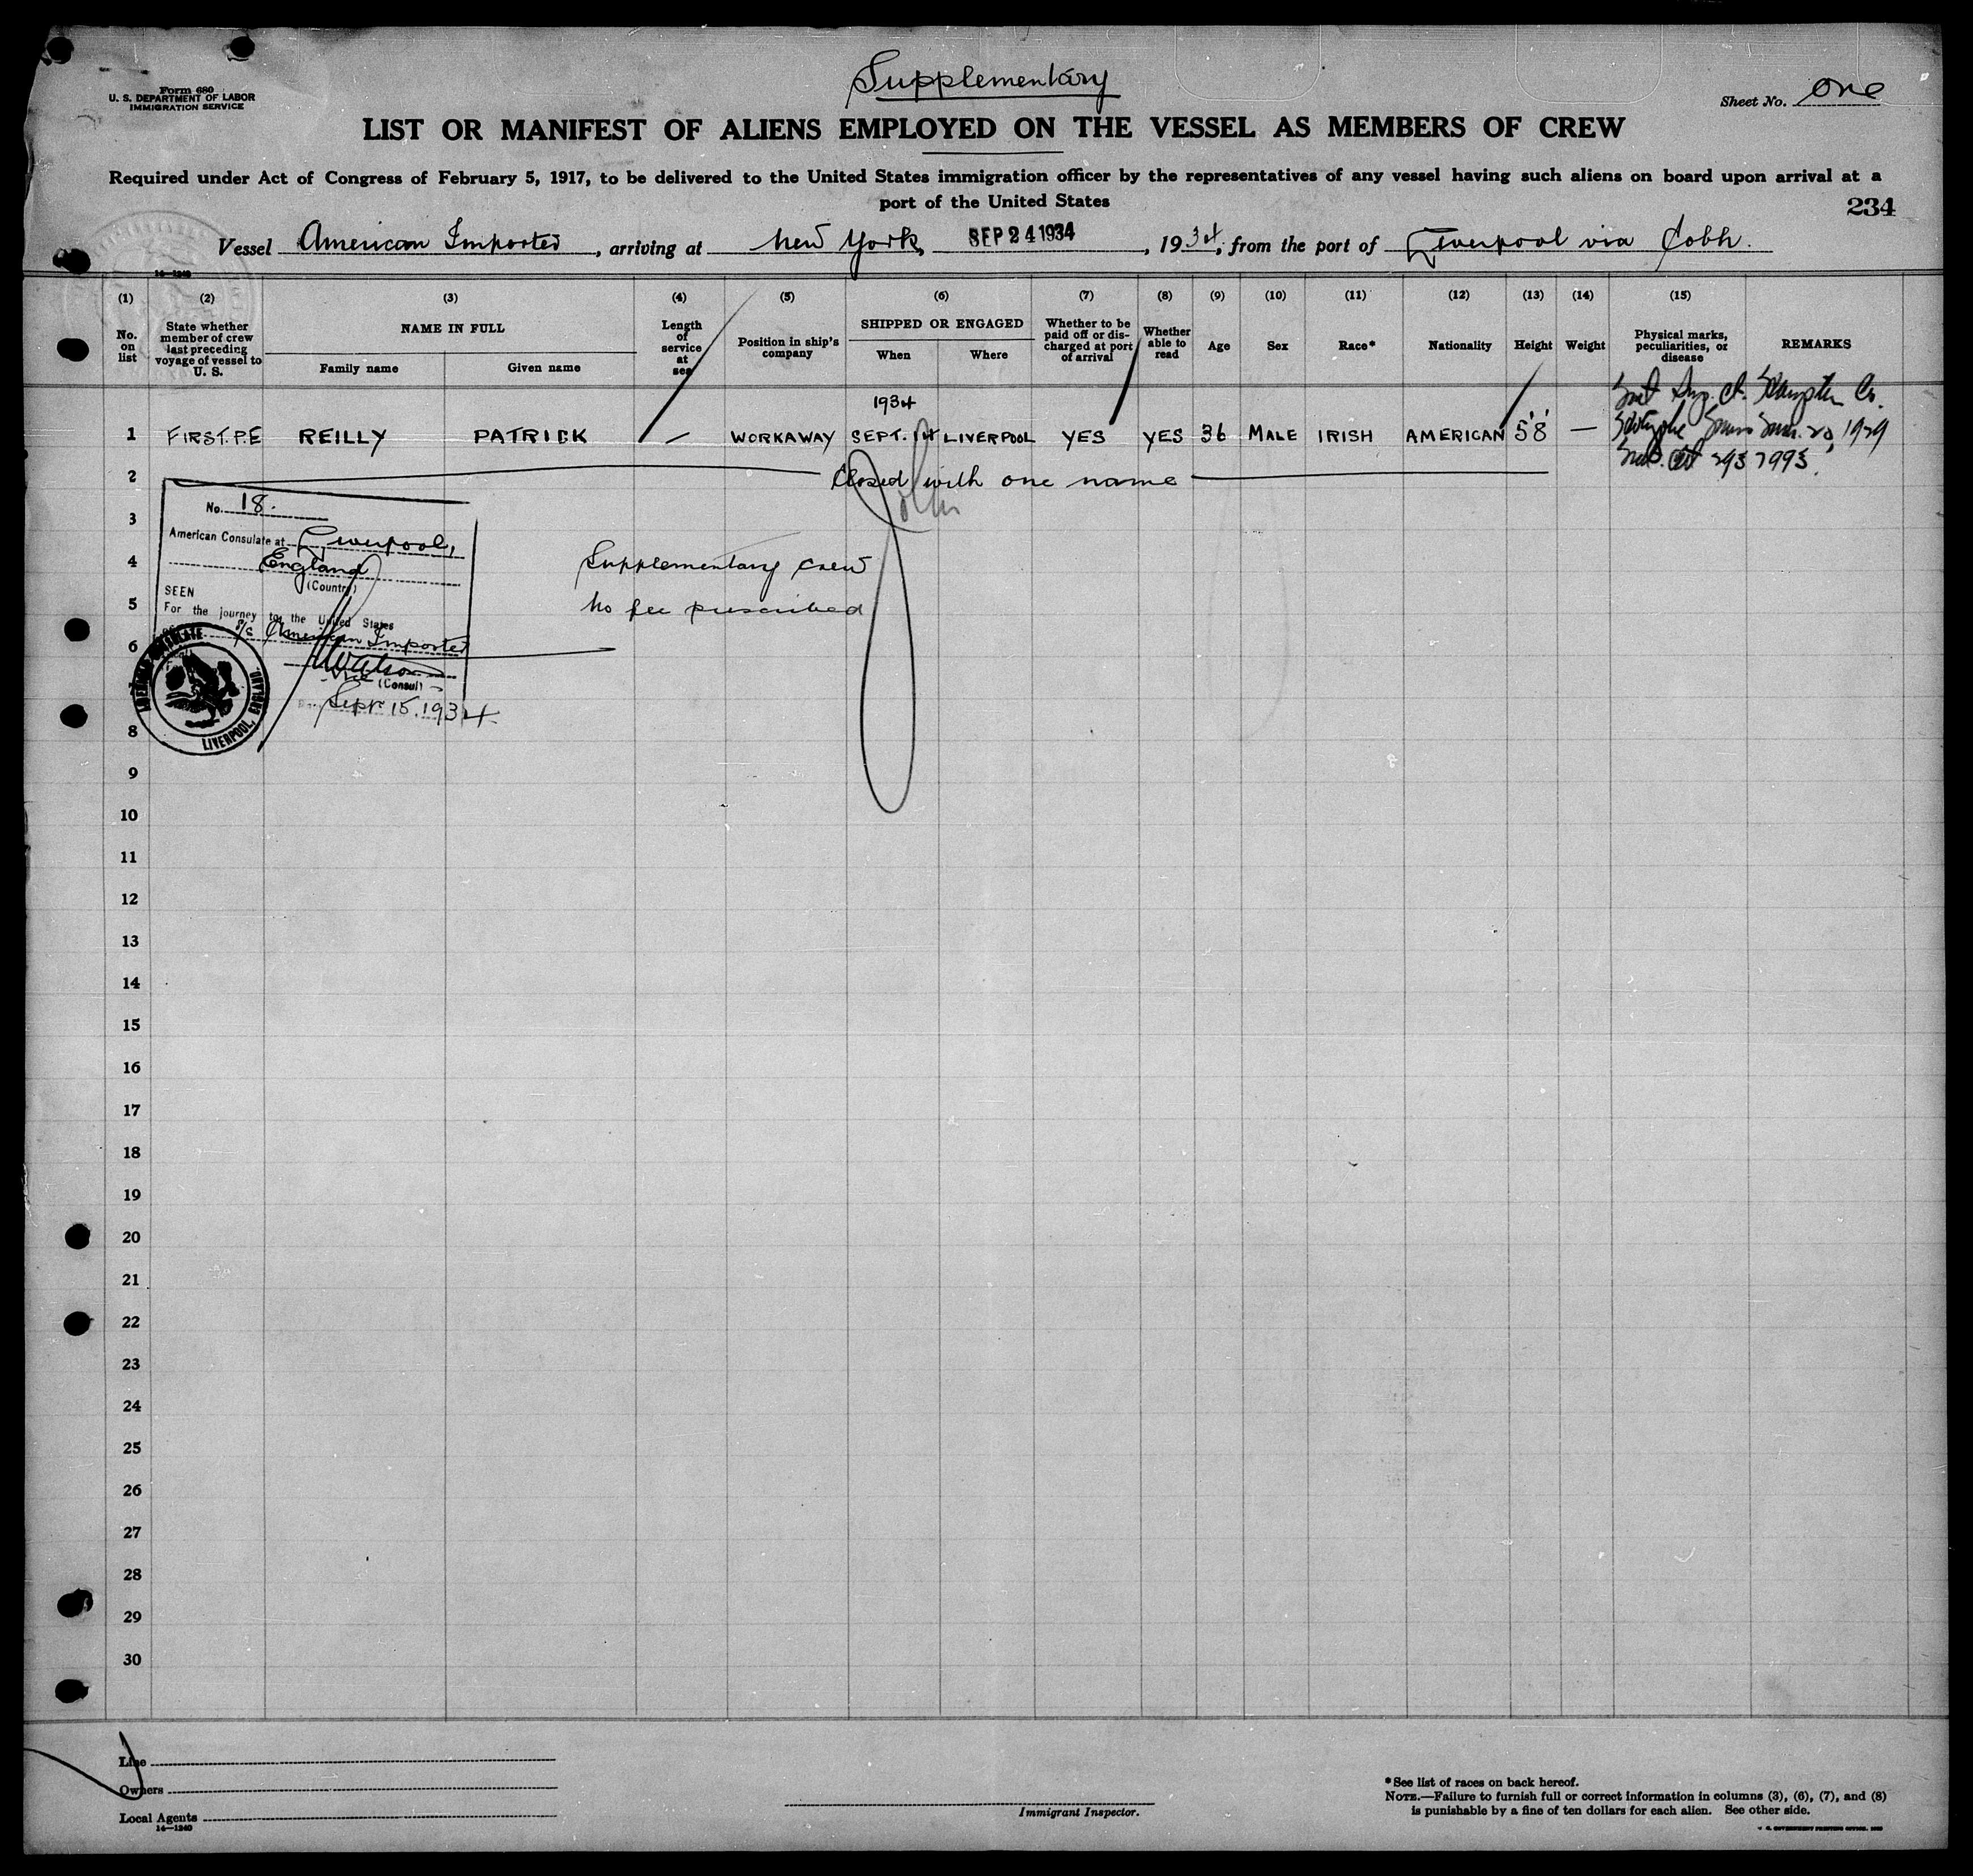 Supplementary
Form 680
U. S. DEPARTMENT OF LABOR
IMMIGRATION SERVICE
Sheet No. One
LIST OR MANIFEST OF ALIENS EMPLOYED ON THE VESSEL AS MEMBERS OF CREW
Required under Act of Congress of February 5, 1917, to be delivered to the United States immigration officer by the representatives of any vessel having such aliens on board upon arrival at a
port of the United States
234
Vessel American Importer, arriving at New York, SEP 24 1934, 1934, from the port of Liverpool via Cobh.
14—1240
(1) (2) (3) (4) (5) (6) (7) (8) (9) (10) (11) (12) (13) (14) (15)
No. on list
State whether member of crew last preceding voyage of vessel to U. S.
NAME IN FULL
Family name
Given name
Length of service at sea
Position in ship's company
SHIPPED OR ENGAGED
When
Where
Whether to be paid off or discharged at port of arrival
Whether able to read
Age
Sex
Race*
Nationality
Height
Weight
Physical marks, peculiarities, or disease
REMARKS
1934
1 FIRST.P.E REILLY PATRICK — WORKAWAY SEPT. 14 LIVERPOOL YES YES 36 MALE IRISH AMERICAN 5'8' —
Sup. Ct. Hampden Co.
20, 1929
2937993
2 Closed with one name
3
4
5
6
7
8
9
10
11
12
13
14
15
16
17
18
19
20
21
22
23
24
25
26
27
28
29
30
No. 18.
American Consulate at Liverpool,
England
(Country)
SEEN
For the journey to the United States
S/S American Importer
Watson
Vice (Consul)
Sept. 15. 1934
AMERICAN CONSULATE
LIVERPOOL, ENGLAND.
Supplementary crew
No fee prescribed
Line
Owners
Local Agents
14—1240
Immigrant Inspector.
*See list of races on back hereof.
NOTE.—Failure to furnish full or correct information in columns (3), (6), (7), and (8)
is punishable by a fine of ten dollars for each alien. See other side.